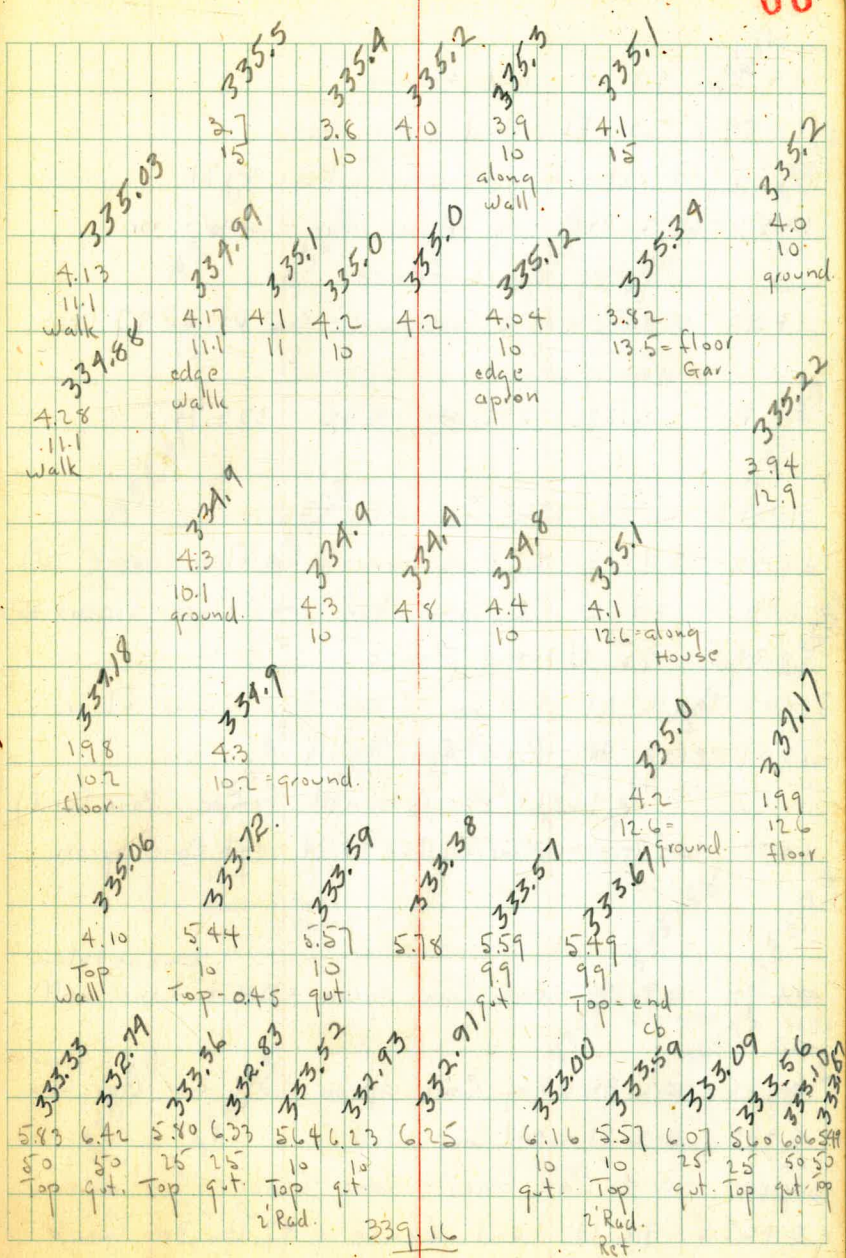 335.5 335.4 335.2 335.3 335.1
3.7 3.8 4.0 3.9 4.1
15 10 10 15
along
wall.
335.2
4.0
10
ground.
335.03
4.13
11.1
walk
334.99 335.1 335.0 335.0 335.12 335.34
4.17 4.1 4.2 4.2 4.04 3.82
11.1 11 10 10 13.5 = floor
edge edge Gar.
walk apron
334.88
4.28
11.1
walk
335.22
3.94
12.9
334.9
4.3
10.1
ground.
334.9 334.4 334.8 335.1
4.3 4.8 4.4 4.1
10 10 12.6 = along
House
337.18 334.9
1.98 4.3
10.2 10.2 = ground.
floor.
335.0 337.17
4.2 1.99
12.6 = 12.6
ground. floor
335.06 333.72 333.59 333.38 333.57 333.67
4.10 5.44 5.57 5.78 5.59 5.49
Top 10 10 9.9 9.9
Wall Top-0.45 gut gut Top = end
cb
333.33 332.74 333.36 332.83 333.52 332.93 332.91 333.00 333.59 333.09 333.56 333.10
5.83 6.42 5.80 6.33 5.64 6.23 6.25 6.16 5.57 6.07 5.60 6.06
50 50 25 25 10 10 10 10 25 25 50 50
Top gut. Top gut. Top gut. gut. Top gut. Top gut. Top
2' Rad. 2' Rad.
339.16 Ret.